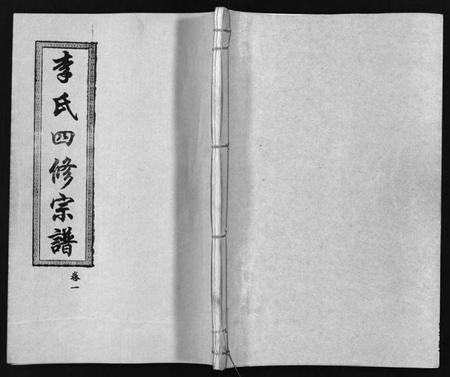 李氏四修宗譜
卷一